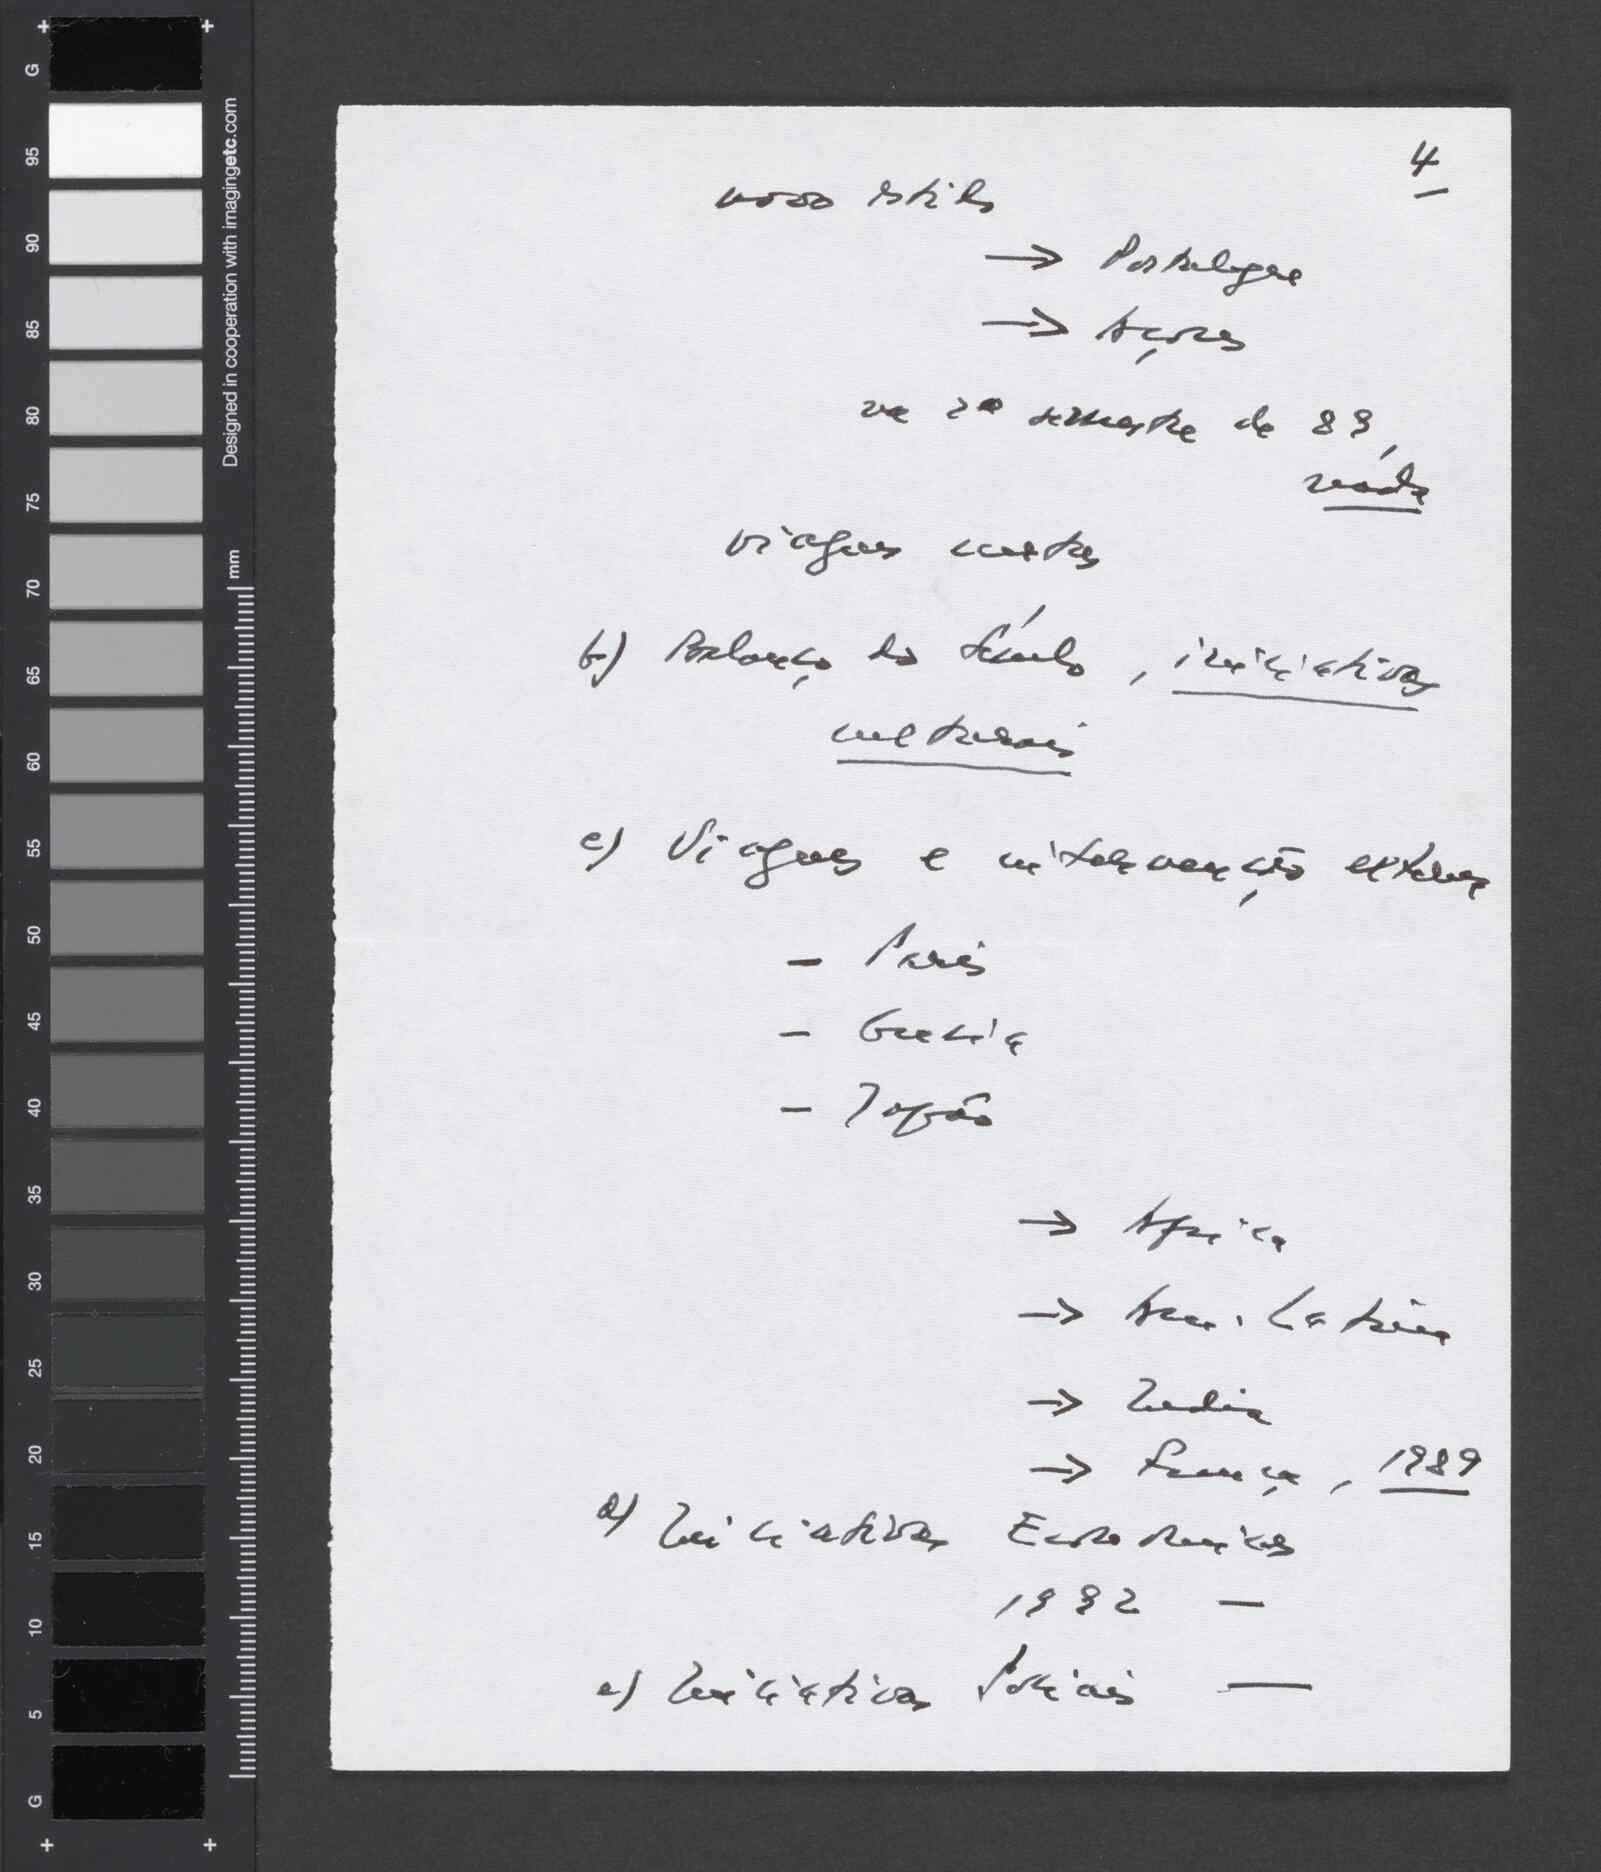 4
novo estilo
→ Portalegre
→ Açores
no 2º semestre de 89,
nada
viagens curtas
b) Balanço do Século, iniciativas
culturais
c) Viagens e intervenção externa
- Paris
- Grecia
- Japão
→ Africa
→ Am. Latina
→ India
→ França, 1989
d) Iniciativas Economicas
1992 —
e) Iniciativas Sociais —
G
95
90
85
80
75
70
65
60
55
50
45
40
35
30
25
20
15
10
5
G
Designed in cooperation with imagingetc.com
mm